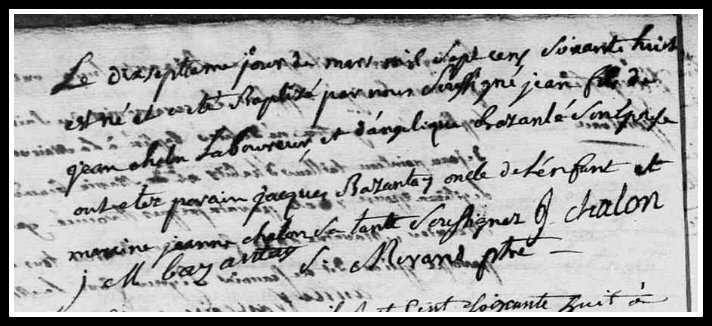 Le dixseptieme jour de mars mil sept cens soixante huit
est né et eté Baptisé par nous soussigné jean fils de
jean chalon Laboureur et d'angelique Bazante son epouse
ont etez parain jacques Bazantay oncle de L'enfant et
maraine jeanne chalon sa tante soussignez J chalon
j M bazantay Si Merand ptre
soixante huit à